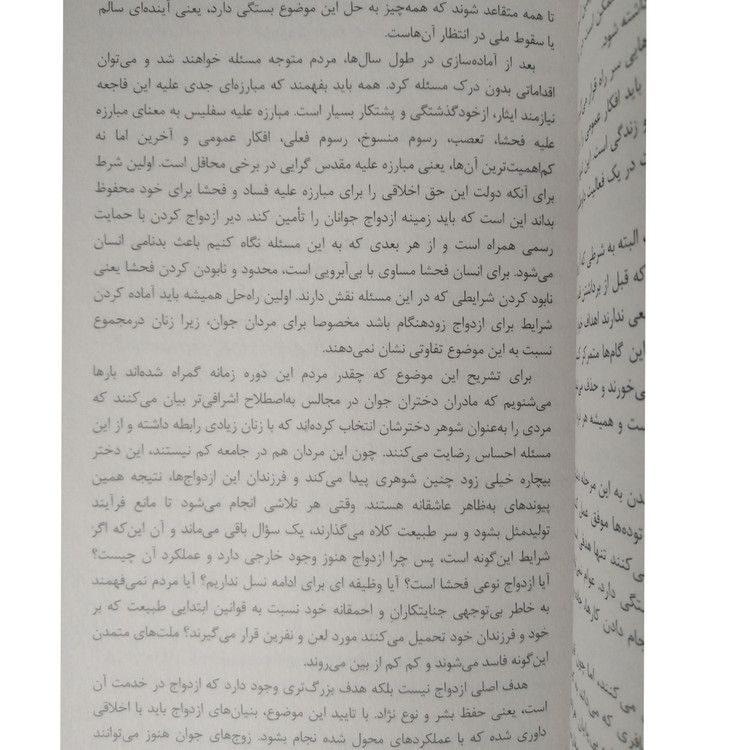 تا همه متقاعد شوند که همه‌چیز به حل این موضوع بستگی دارد، یعنی آینده‌ای سالم
یا سقوط ملی در انتظار آن‌هاست.
بعد از آماده‌سازی در طول سال‌ها، مردم متوجه مسئله خواهند شد و می‌توان
اقداماتی بدون درک مسئله کرد. همه باید بفهمند که مبارزه‌ای جدی علیه این فاجعه
نیازمند ایثار، ازخودگذشتگی و پشتکار بسیار است. مبارزه علیه سفلیس به معنای مبارزه
علیه فحشا، تعصب، رسوم منسوخ، رسوم فعلی، افکار عمومی و آخرین اما نه
کم‌اهمیت‌ترین آن‌ها، یعنی مبارزه علیه مقدس گرایی در برخی محافل است. اولین شرط
برای آنکه دولت این حق اخلاقی را برای مبارزه علیه فساد و فحشا برای خود محفوظ
بداند این است که باید زمینه ازدواج جوانان را تأمین کند. دیر ازدواج کردن با حمایت
رسمی همراه است و از هر بعدی که به این مسئله نگاه کنیم باعث بدنامی انسان
می‌شود. برای انسان فحشا مساوی با بی‌آبرویی است، محدود و نابودن کردن فحشا یعنی
نابود کردن شرایطی که در این مسئله نقش دارند. اولین راه‌حل همیشه باید آماده کردن
شرایط برای ازدواج زودهنگام باشد مخصوصا برای مردان جوان، زیرا زنان درمجموع
نسبت به این موضوع تفاوتی نشان نمی‌دهند.
برای تشریح این موضوع که چقدر مردم این دوره زمانه گمراه شده‌اند بارها
می‌شنویم که مادران دختران جوان در مجالس به‌اصطلاح اشرافی‌تر بیان می‌کنند که
مردی را به‌عنوان شوهر دخترشان انتخاب کرده‌اند که با زنان زیادی رابطه داشته و از این
مسئله احساس رضایت می‌کنند. چون این مردان هم در جامعه کم نیستند، این دختر
بیچاره خیلی زود چنین شوهری پیدا می‌کند و فرزندان این ازدواج‌ها، نتیجه همین
پیوندهای به‌ظاهر عاشقانه هستند. وقتی هر تلاشی انجام می‌شود تا مانع فرآیند
تولیدمثل بشود و سر طبیعت کلاه می‌گذارند، یک سؤال باقی می‌ماند و آن این‌که اگر
شرایط این‌گونه است، پس چرا ازدواج هنوز وجود خارجی دارد و عملکرد آن چیست؟
آیا ازدواج نوعی فحشا است؟ آیا وظیفه ای برای ادامه نسل نداریم؟ آیا مردم نمی‌فهمند
به خاطر بی‌توجهی جنایتکاران و احمقانه خود نسبت به قوانین ابتدایی طبیعت که بر
خود و فرزندان خود تحمیل می‌کنند مورد لعن و نفرین قرار می‌گیرند؟ ملت‌های متمدن
این‌گونه فاسد می‌شوند و کم کم از بین می‌روند.
هدف اصلی ازدواج نیست بلکه هدف بزرگ‌تری وجود دارد که ازدواج در خدمت آن
است، یعنی حفظ بشر و نوع نژاد. با تایید این موضوع، بنیان‌های ازدواج باید با اخلاقی
داوری شده که با عملکردهای محول شده نجام بشود. زوج‌های جوان هنوز می‌توانند